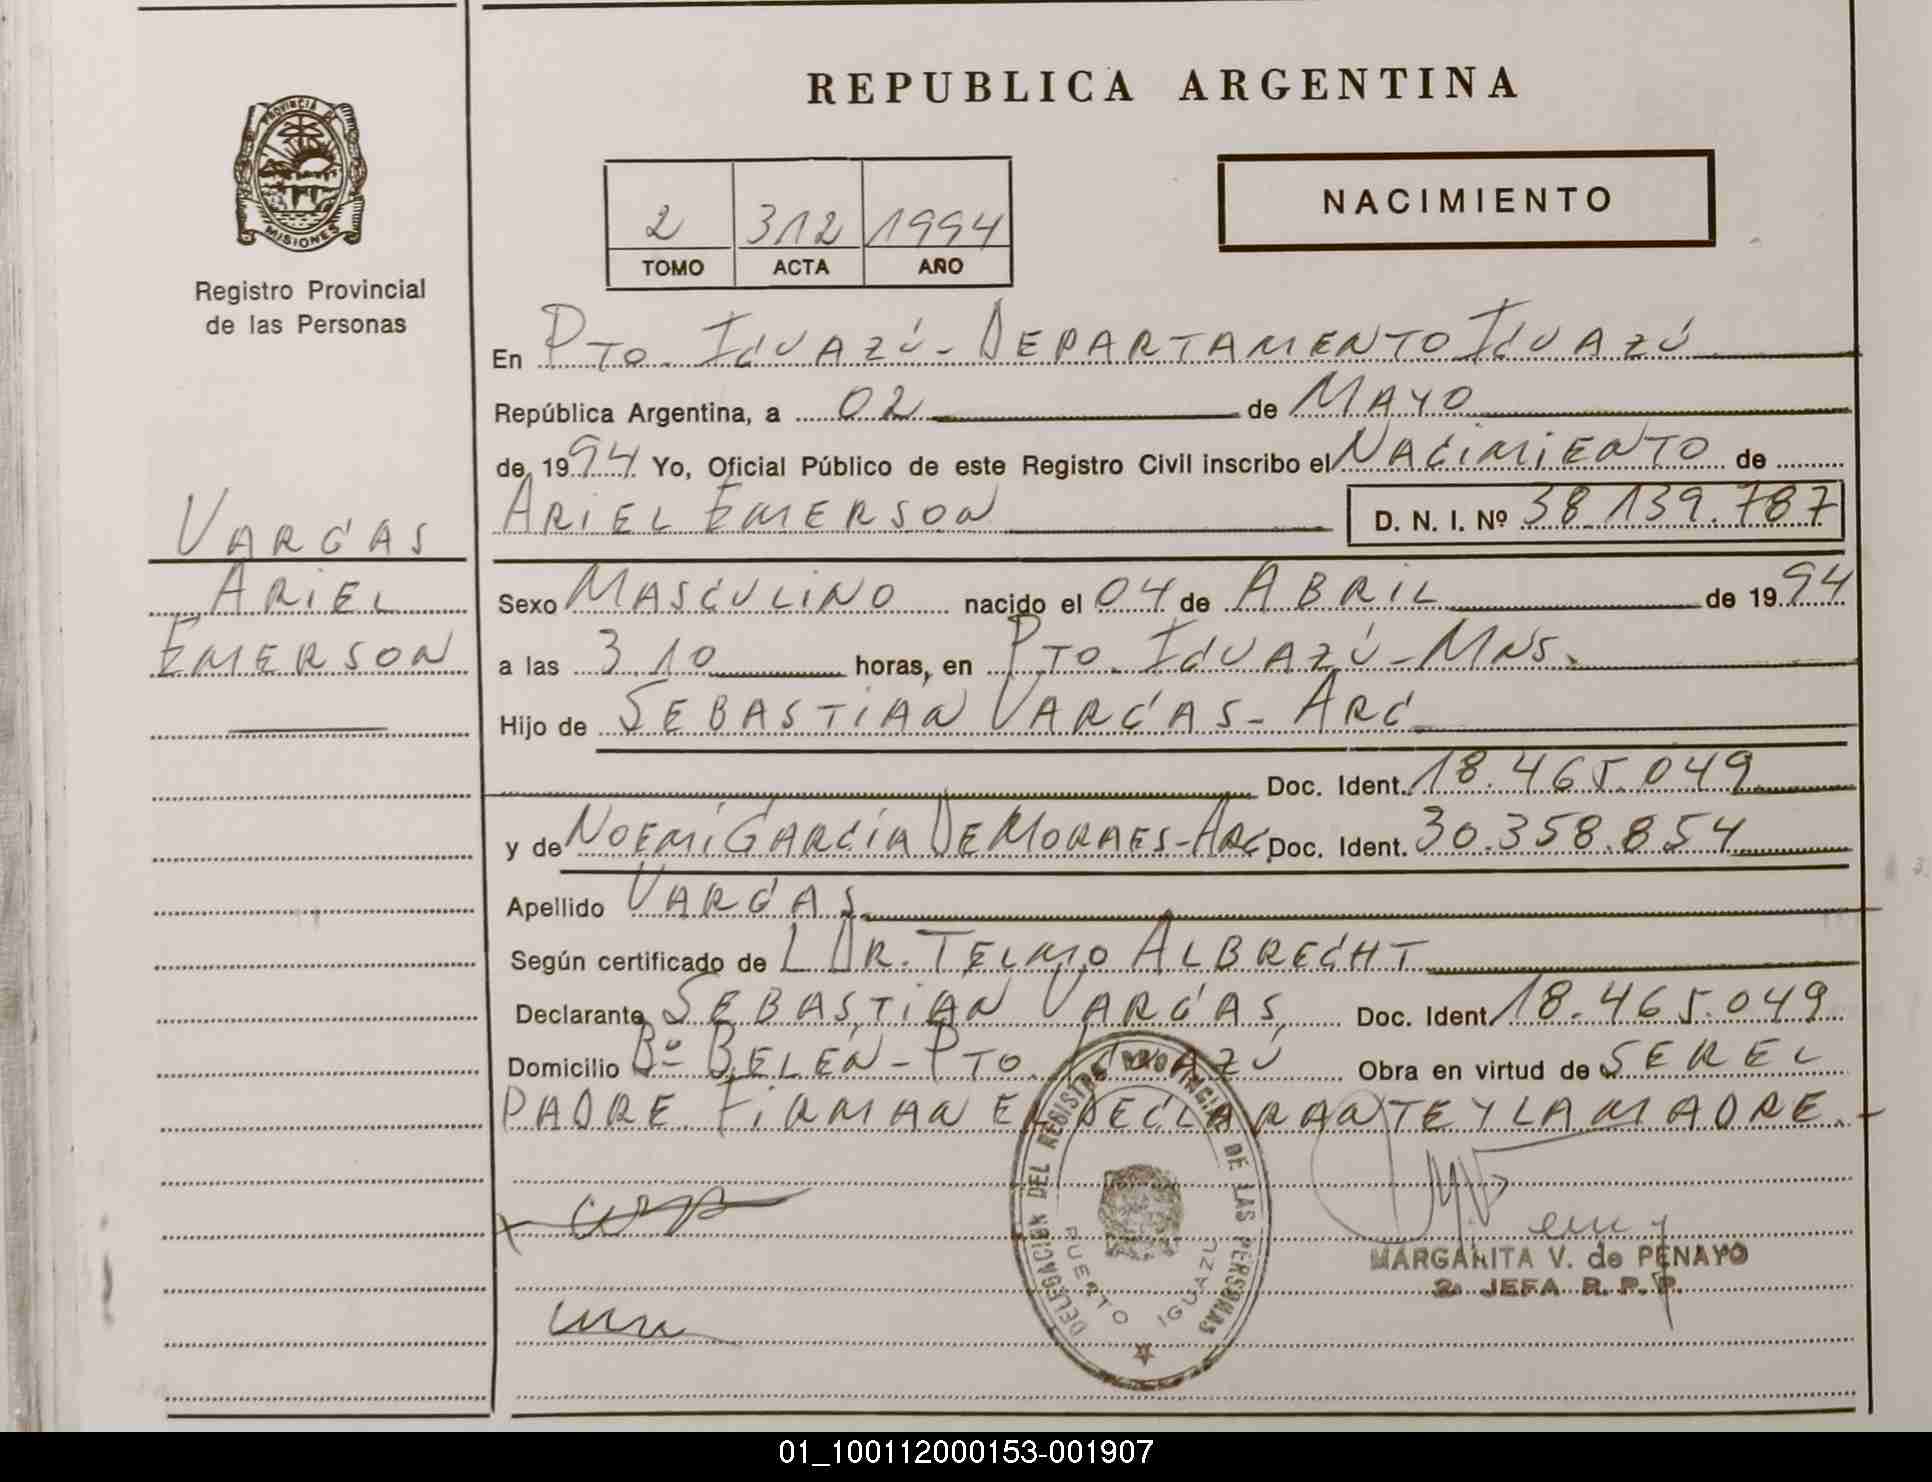 REPUBLICA ARGENTINA
PROVINCIA DE
MISIONES
Registro Provincial
de las Personas
NACIMIENTO
2 312 1994
TOMO ACTA AÑO
En PTO. IGUAZÚ - DEPARTAMENTO IGUAZÚ
República Argentina, a 02 de MAYO
de 1994 Yo, Oficial Público de este Registro Civil inscribo el NACIMIENTO de
ARIEL EMERSON D. N. I. Nº 38.139.787
VARGAS
ARIEL
EMERSON
Sexo MASCULINO nacido el 04 de ABRIL de 1994
a las 3.10 horas, en PTO. IGUAZÚ - MNS.
Hijo de SEBASTIAN VARGAS - ARG
Doc. Ident. 18.465.049
y de NOEMI GARCÍA DE MORAES - ARG. Doc. Ident. 30.358.854
Apellido VARGAS
Según certificado de L DR. TELMO ALBRECHT
Declarante SEBASTIAN VARGAS Doc. Ident. 18.465.049
Domicilio Bº BELÉN - PTO. IGUAZÚ Obra en virtud de SER EL
PADRE FIRMAN EL DECLARANTE Y LA MADRE. -
DELEGACIÓN DEL REGISTRO PROVINCIAL DE LAS PERSONAS
PUERTO IGUAZU
MARGARITA V. de PENAYO
2ª JEFA R. P. P.
01_100112000153-001907